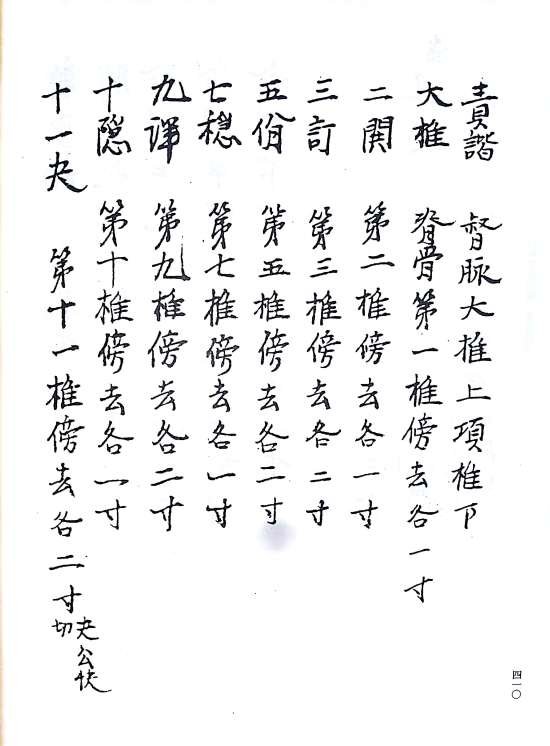 責諧 督脉大椎上項椎下
大椎 脊骨第一椎傍去各一寸
二関 第二椎傍去各一寸
三訂 第三椎傍去各二寸
五佾 第五椎傍去各二寸
七檼 第七椎傍去各一寸
九諢 第九椎傍去各二寸
十隱 第十椎傍去各一寸
十一夬 第十一椎傍去各二寸 夬公快切
四一〇